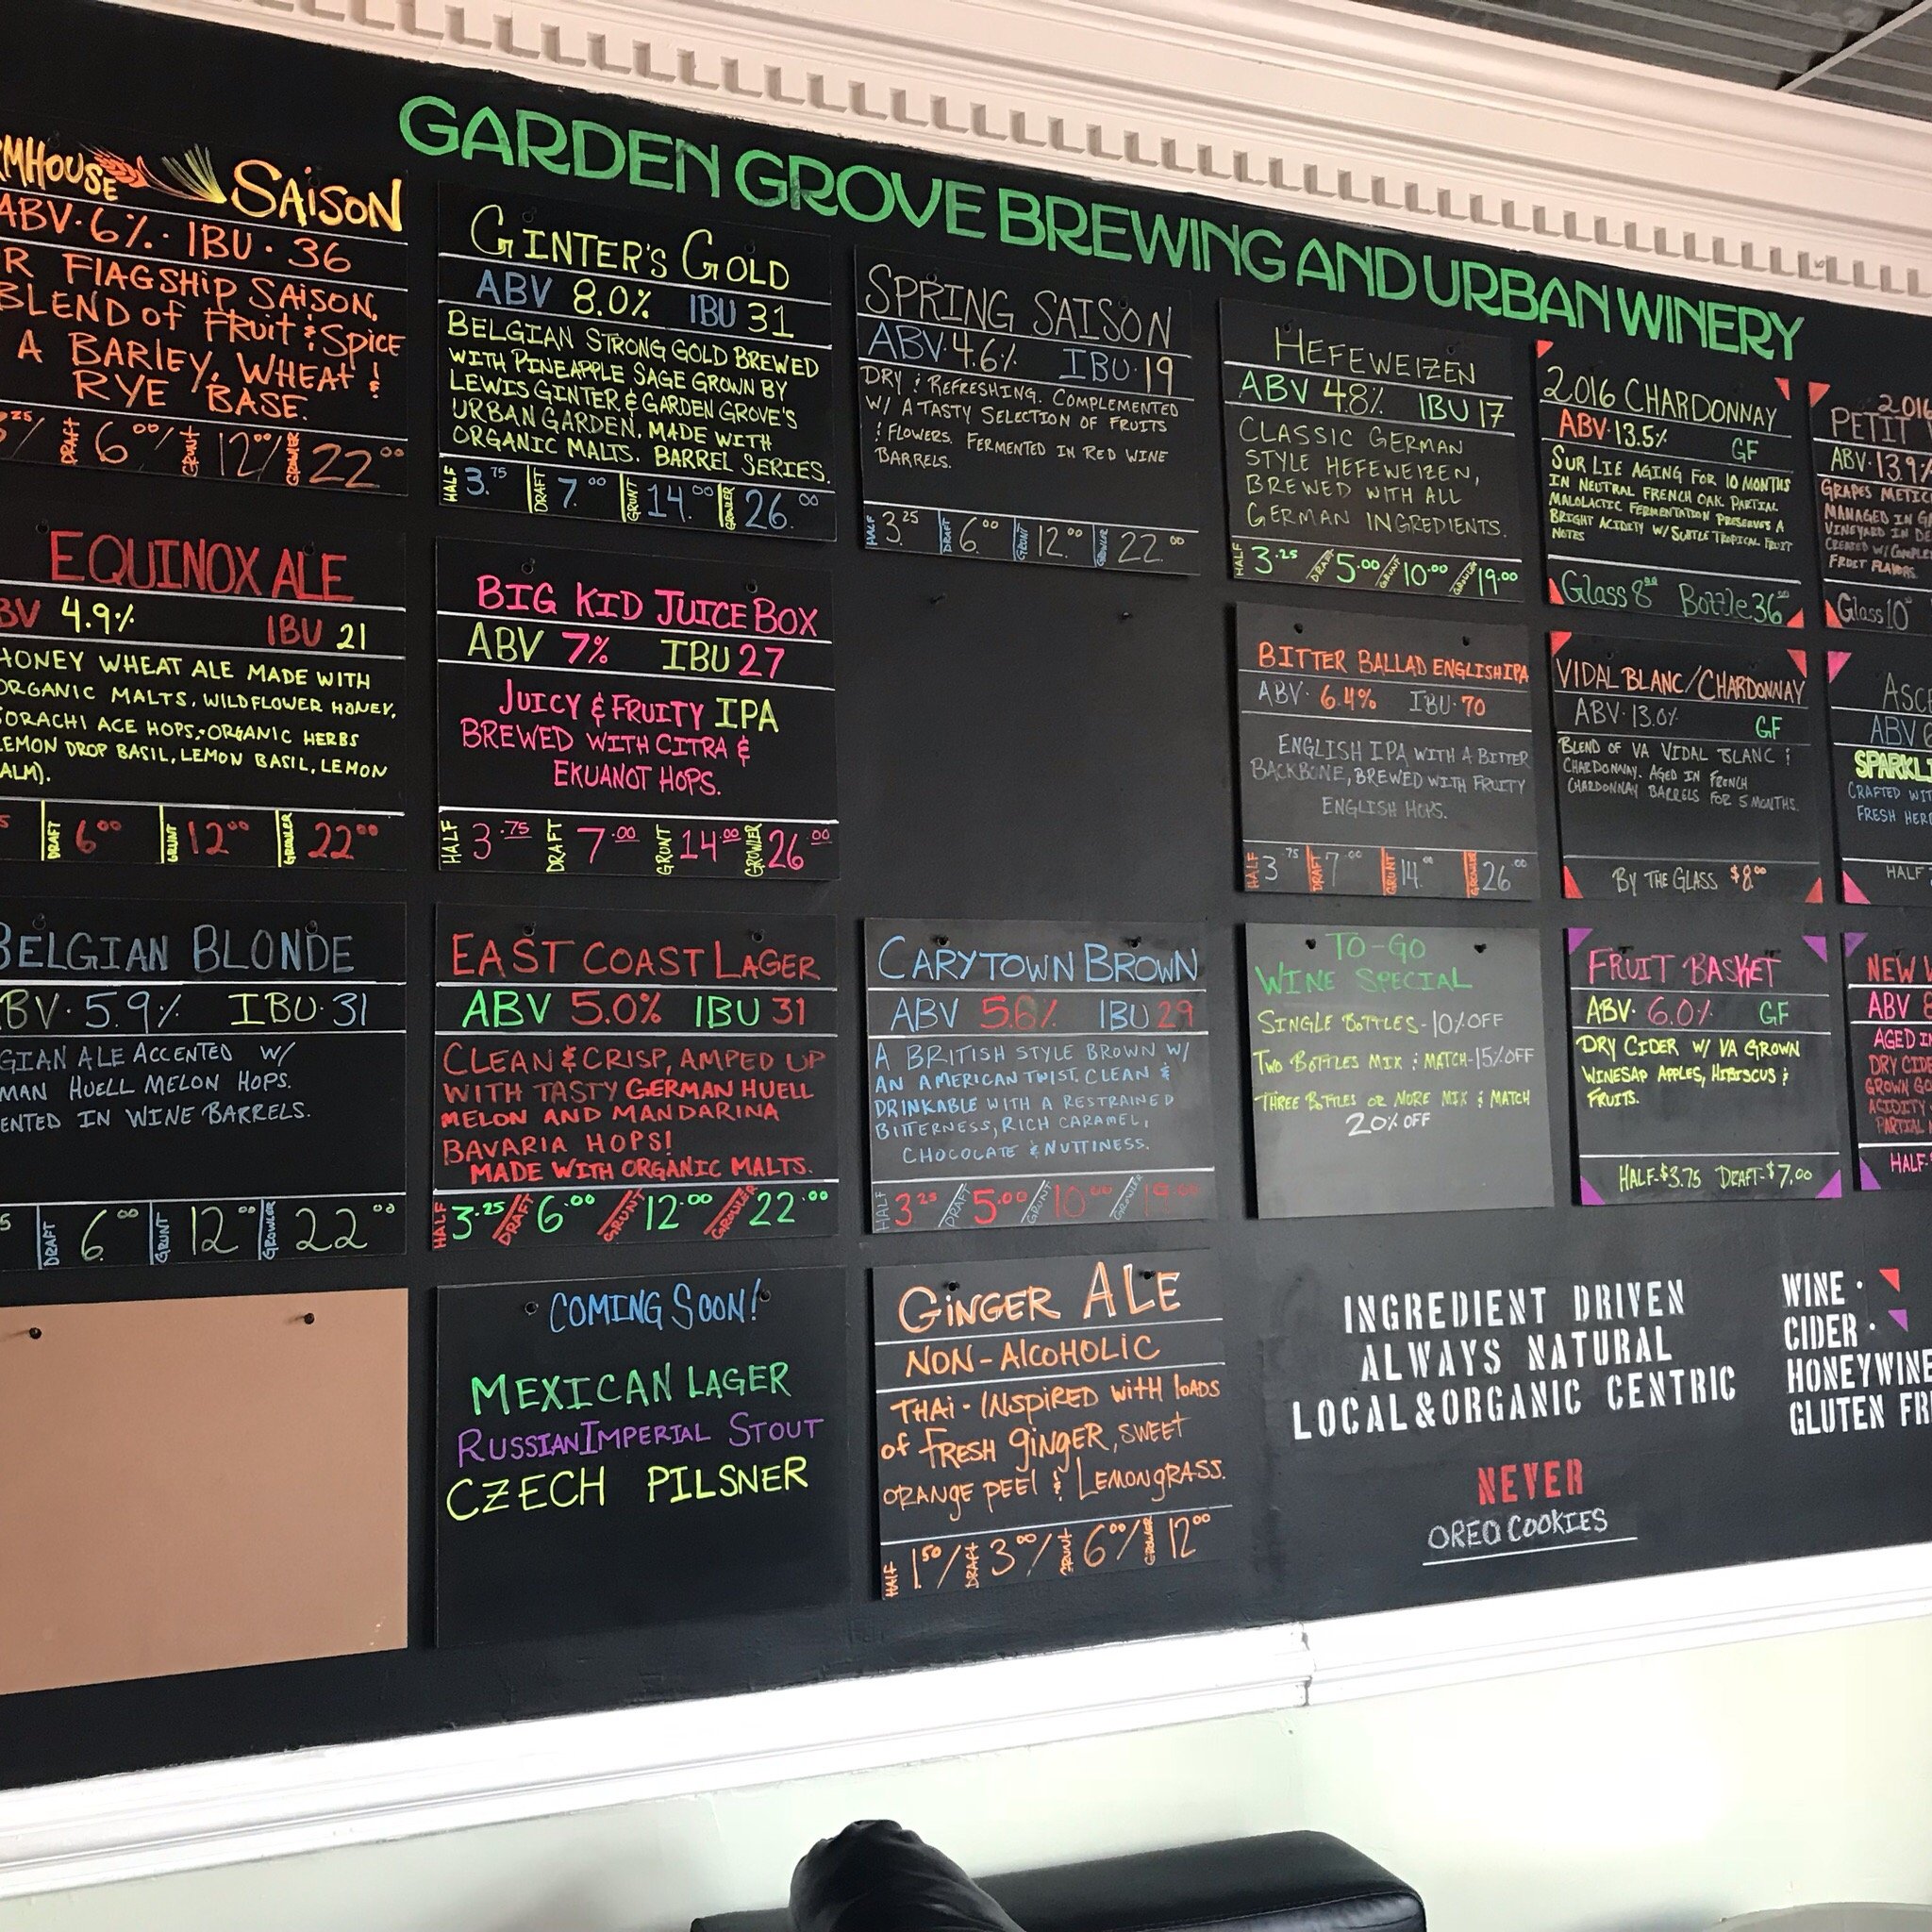 GARDEN GROVE BREWING AND URBAN WINERY
SAISON
ABV·6%· IBU·36
FLAGSHIP SAISON,
BLEND of FRUIT & SPICE
A BARLEY, WHEAT &
RYE BASE.
DRAFT 6.00/ GRUNT 12.00/ GROWLER 22.00
EQUINOX ALE
4.9% IBU 21
HONEY WHEAT ALE MADE WITH
ORGANIC MALTS, WILDFLOWER HONEY,
SORACHI ACE HOPS, ORGANIC HERBS
LEMON DROP BASIL, LEMON BASIL, LEMON
DRAFT 6.00 GRUNT 12.00 GROWLER 22.00
BELGIAN BLONDE
5.9% IBU·31
ALE ACCENTED W/
HUELL MELON HOPS.
IN WINE BARRELS.
DRAFT 6.00 GRUNT 12.00 GROWLER 22.00
GINTER'S GOLD
ABV 8.0% IBU 31
BELGIAN STRONG GOLD BREWED
WITH PINEAPPLE SAGE GROWN BY
LEWIS GINTER & GARDEN GROVE'S
URBAN GARDEN. MADE WITH
ORGANIC MALTS. BARREL SERIES.
HALF 3.75 DRAFT 7.00 GRUNT 14.00 GROWLER 26.00
BIG KID JUICE BOX
ABV 7% IBU 27
JUICY & FRUITY IPA
BREWED WITH CITRA &
EKUANOT HOPS.
HALF 3.75 DRAFT 7.00 GRUNT 14.00 GROWLER 26.00
EAST COAST LAGER
ABV 5.0% IBU 31
CLEAN & CRISP, AMPED UP
WITH TASTY GERMAN HUELL
MELON AND MANDARINA
BAVARIA HOPS!
MADE WITH ORGANIC MALTS.
HALF 3.25 DRAFT 6.00 GRUNT 12.00 GROWLER 22.00
COMING SOON!
MEXICAN LAGER
RUSSIAN IMPERIAL STOUT
CZECH PILSNER
SPRING SAISON
ABV·4.6% IBU·19
DRY & REFRESHING. COMPLEMENTED
W/ A TASTY SELECTION OF FRUITS
& FLOWERS. FERMENTED IN RED WINE
BARRELS.
HALF 3.25 DRAFT 6.00 GRUNT 12.00 GROWLER 22.00
CARYTOWN BROWN
ABV 5.6% IBU 29
A BRITISH STYLE BROWN W/
AN AMERICAN TWIST. CLEAN &
DRINKABLE WITH A RESTRAINED
BITTERNESS, RICH CARAMEL,
CHOCOLATE & NUTTINESS.
HALF 3.25 / DRAFT 5.00 / GRUNT 10.00 / GROWLER 19.00
GINGER ALE
NON-ALCOHOLIC
THAI-INSPIRED WITH LOADS
of FRESH GINGER, SWEET
ORANGE PEEL & LEMONGRASS.
HALF 1.50/ DRAFT 3.00/ GRUNT 6.00/ GROWLER 12.00
HEFEWEIZEN
ABV 4.8% IBU 17
CLASSIC GERMAN
STYLE HEFEWEIZEN,
BREWED WITH ALL
GERMAN INGREDIENTS.
HALF 3.25 / DRAFT 5.00 / GRUNT 10.00 / GROWLER 19.00
BITTER BALLAD ENGLISH IPA
ABV· 6.4% IBU·70
ENGLISH IPA WITH A BITTER
BACKBONE, BREWED WITH FRUITY
ENGLISH HOPS.
HALF 3.75 DRAFT 7.00 GRUNT 14.00 GROWLER 26.00
TO-GO
WINE SPECIAL
SINGLE BOTTLES-10% OFF
TWO BOTTLES MIX & MATCH-15% OFF
THREE BOTTLES OR MORE MIX & MATCH
20% OFF
2016 CHARDONNAY
ABV·13.5% GF
SUR LIE AGING FOR 10 MONTHS
IN NEUTRAL FRENCH OAK. PARTIAL
MALOLACTIC FERMENTATION PRESERVES A
BRIGHT ACIDITY W/ SUBTLE TROPICAL FRUIT
NOTES
Glass 8.00 Bottle 36.00
VIDAL BLANC/CHARDONNAY
ABV·13.0% GF
BLEND OF VA VIDAL BLANC &
CHARDONNAY. AGED IN FRENCH
CHARDONNAY BARRELS FOR 5 MONTHS.
BY THE GLASS $8.00
FRUIT BASKET
ABV· 6.0% GF
DRY CIDER W/ VA GROWN
WINESAP APPLES, HIBISCUS &
FRUITS.
HALF-$3.75 DRAFT-$7.00
2016
PETIT
ABV·13.9%
GRAPES
MANAGED IN
VINEYARD IN
CREATED W/
FRUIT FLAVORS.
Glass 10
ABV
CRAFTED
FRESH
HALF
NEW
ABV
AGED
DRY
GROWN
ACIDITY
PARTIAL
HALF-
INGREDIENT DRIVEN
ALWAYS NATURAL
LOCAL&ORGANIC CENTRIC
NEVER
OREO COOKIES
WINE·
CIDER·
HONEYWINE
GLUTEN